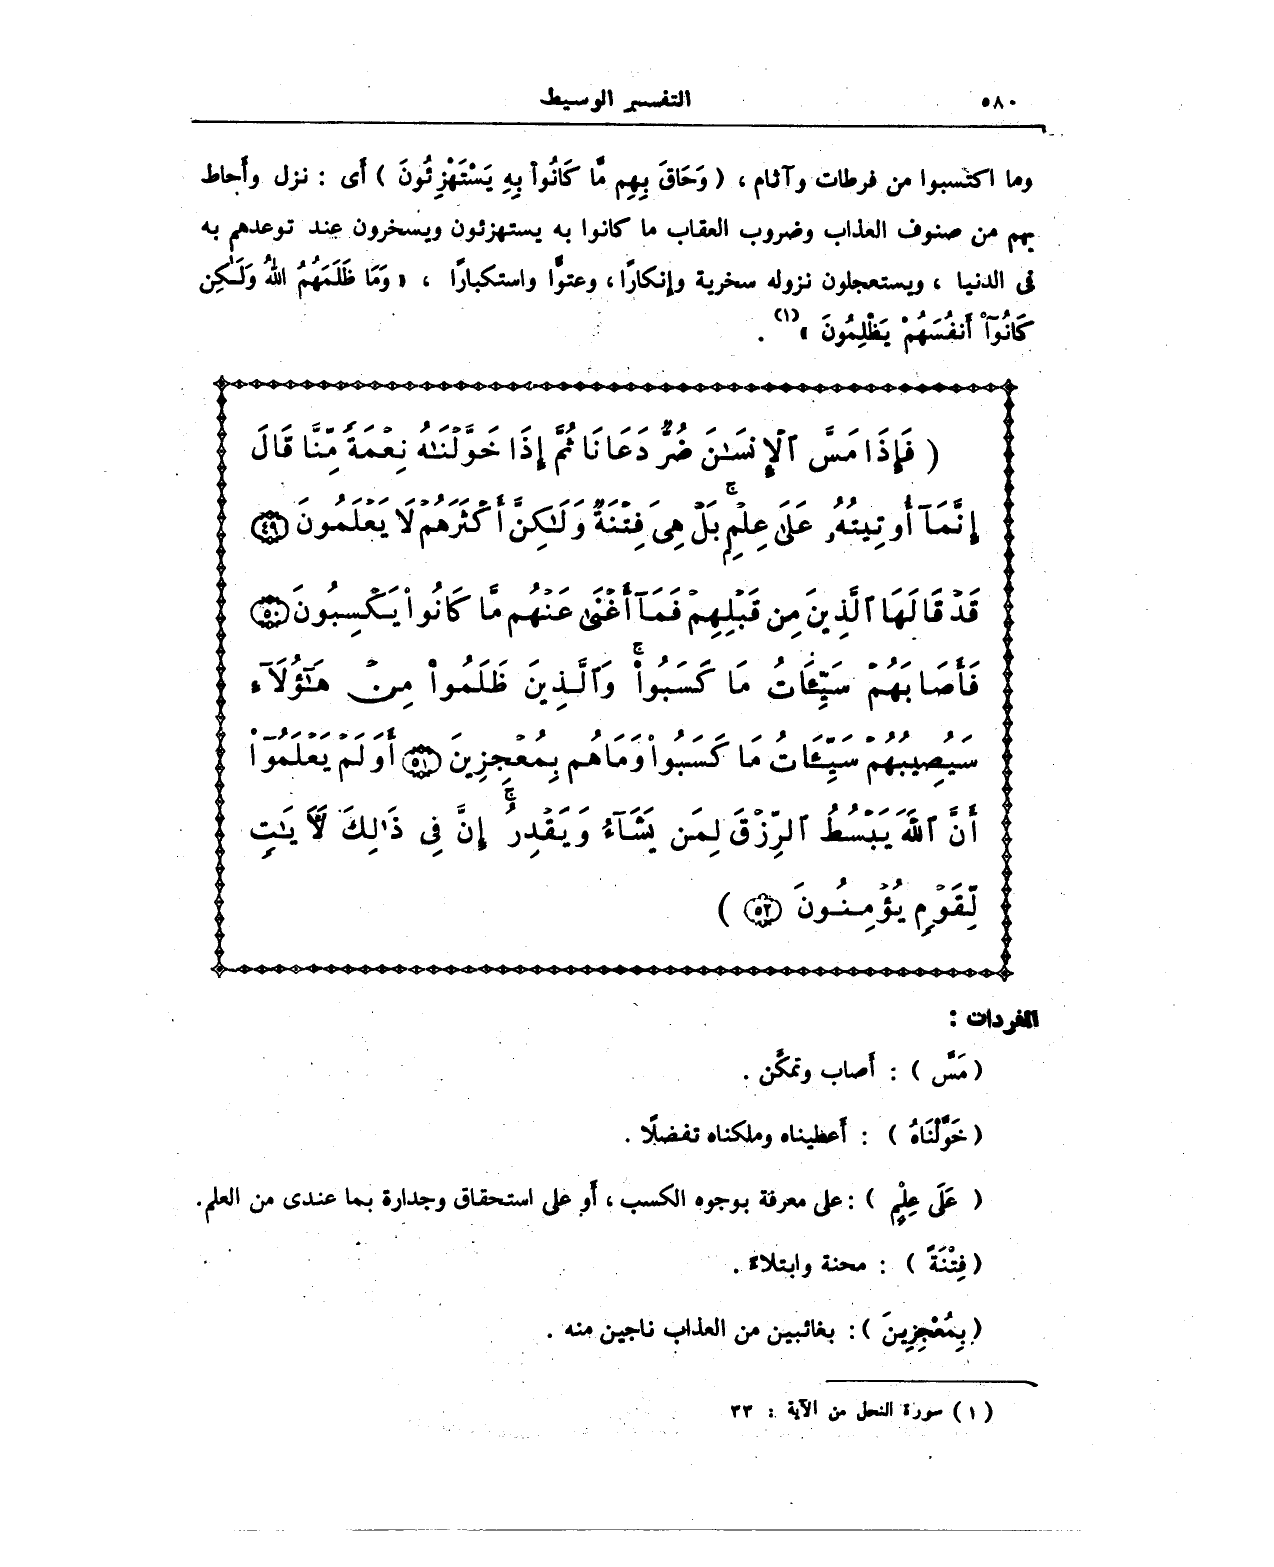 ٥٨٠
التفسير الوسيط
وما اكتسبوا من فرطات وآثام ، ( وَحَاقَ بِهِم مَّا كَانُواْ بِهِ يَسْتَهْزِئُونَ ) أى : نزل وأحاط
بهم من صنوف العذاب وضروب العقاب ما كانوا به يستهزئون ويسخرون عند توعدهم به
فى الدنيا ، ويستعجلون نزوله سخرية وإنكارًا ، وعتوًّا واستكبارًا ، « وَمَا ظَلَمَهُمُ اللهُ وَلَـٰكِن
كَانُوٓاْ أَنفُسَهُمْ يَظْلِمُونَ »(١) .
( فَإِذَا مَسَّ ٱلْإِنسَـٰنَ ضُرٌّ دَعَانَا ثُمَّ إِذَا خَوَّلْنَـٰهُ نِعْمَةً مِّنَّا قَالَ
إِنَّمَآ أُوتِيتُهُۥ عَلَىٰ عِلْمِۭ ۚ بَلْ هِىَ فِتْنَةٌ وَلَـٰكِنَّ أَكْثَرَهُمْ لَا يَعْلَمُونَ ٤٩
قَدْ قَالَهَا ٱلَّذِينَ مِن قَبْلِهِمْ فَمَآ أَغْنَىٰ عَنْهُم مَّا كَانُواْ يَكْسِبُونَ ٥٠
فَأَصَابَهُمْ سَيِّـَٔاتُ مَا كَسَبُواْ ۚ وَٱلَّذِينَ ظَلَمُواْ مِنْ هَـٰٓؤُلَآءِ
سَيُصِيبُهُمْ سَيِّـَٔاتُ مَا كَسَبُواْ وَمَا هُم بِمُعْجِزِينَ ٥١ أَوَلَمْ يَعْلَمُوٓاْ
أَنَّ ٱللَّهَ يَبْسُطُ ٱلرِّزْقَ لِمَن يَشَآءُ وَيَقْدِرُ ۚ إِنَّ فِى ذَٰلِكَ لَـَٔايَـٰتٍ
لِّقَوْمٍ يُؤْمِنُونَ ٥٢ )
المفردات :
( مَسَّ ) : أَصاب وتمكَّن .
( خَوَّلْنَاهُ ) : أَعطيناه وملكناه تفضلًا .
( عَلَى عِلْمٍ ) : على معرفة بوجوه الكسب ، أَو على استحقاق وجدارة بما عندى من العلم .
( فِتْنَةٌ ) : محنة وابتلاءٌ .
( بِمُعْجِزِينَ ) : بغائبين من العذاب ناجين منه .
( ١ ) سورة النحل من الآية : ٣٣